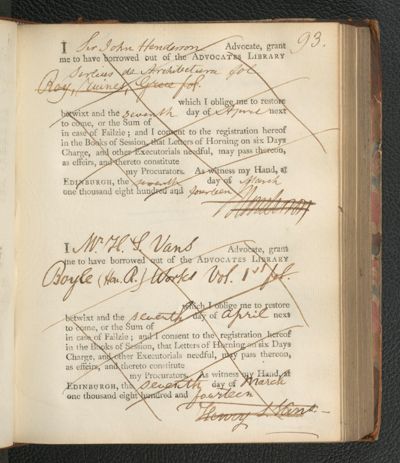 93.
I Sir John Henderson Advocate, grant
me to have borrowed out of the ADVOCATES LIBRARY
Serlius de Architectura fol
Roy, Ruines, Grece fol.
which I oblige me to restore
betwixt and the seventh day of Aprile next
to come, or the Sum of
in case of Failzie; and I consent to the registration hereof
in the Books of Session, that Letters of Horning on six Days
Charge, and other Executorials needful, may pass thereon,
as effeirs, and thereto constitute
my Procurators. As witness my Hand, at
EDINBURGH, the seventh day of March
one thousand eight hundred and fourteen
I Mr H. S. Vans Advocate, grant
me to have borrowed out of the ADVOCATES LIBRARY
Boyle (Hon. R.) Works Vol. 1st fol.
which I oblige me to restore
betwixt and the seventh day of April next
to come, or the Sum of
in case of Failzie; and I consent to the registration hereof
in the Books of Session, that Letters of Horning on six Days
Charge, and other Executorials needful, may pass thereon,
as effeirs, and thereto constitute
my Procurators. As witness my Hand, at
EDINBURGH, the seventh day of March
one thousand eight hundred and fourteen
Henry S. Vans